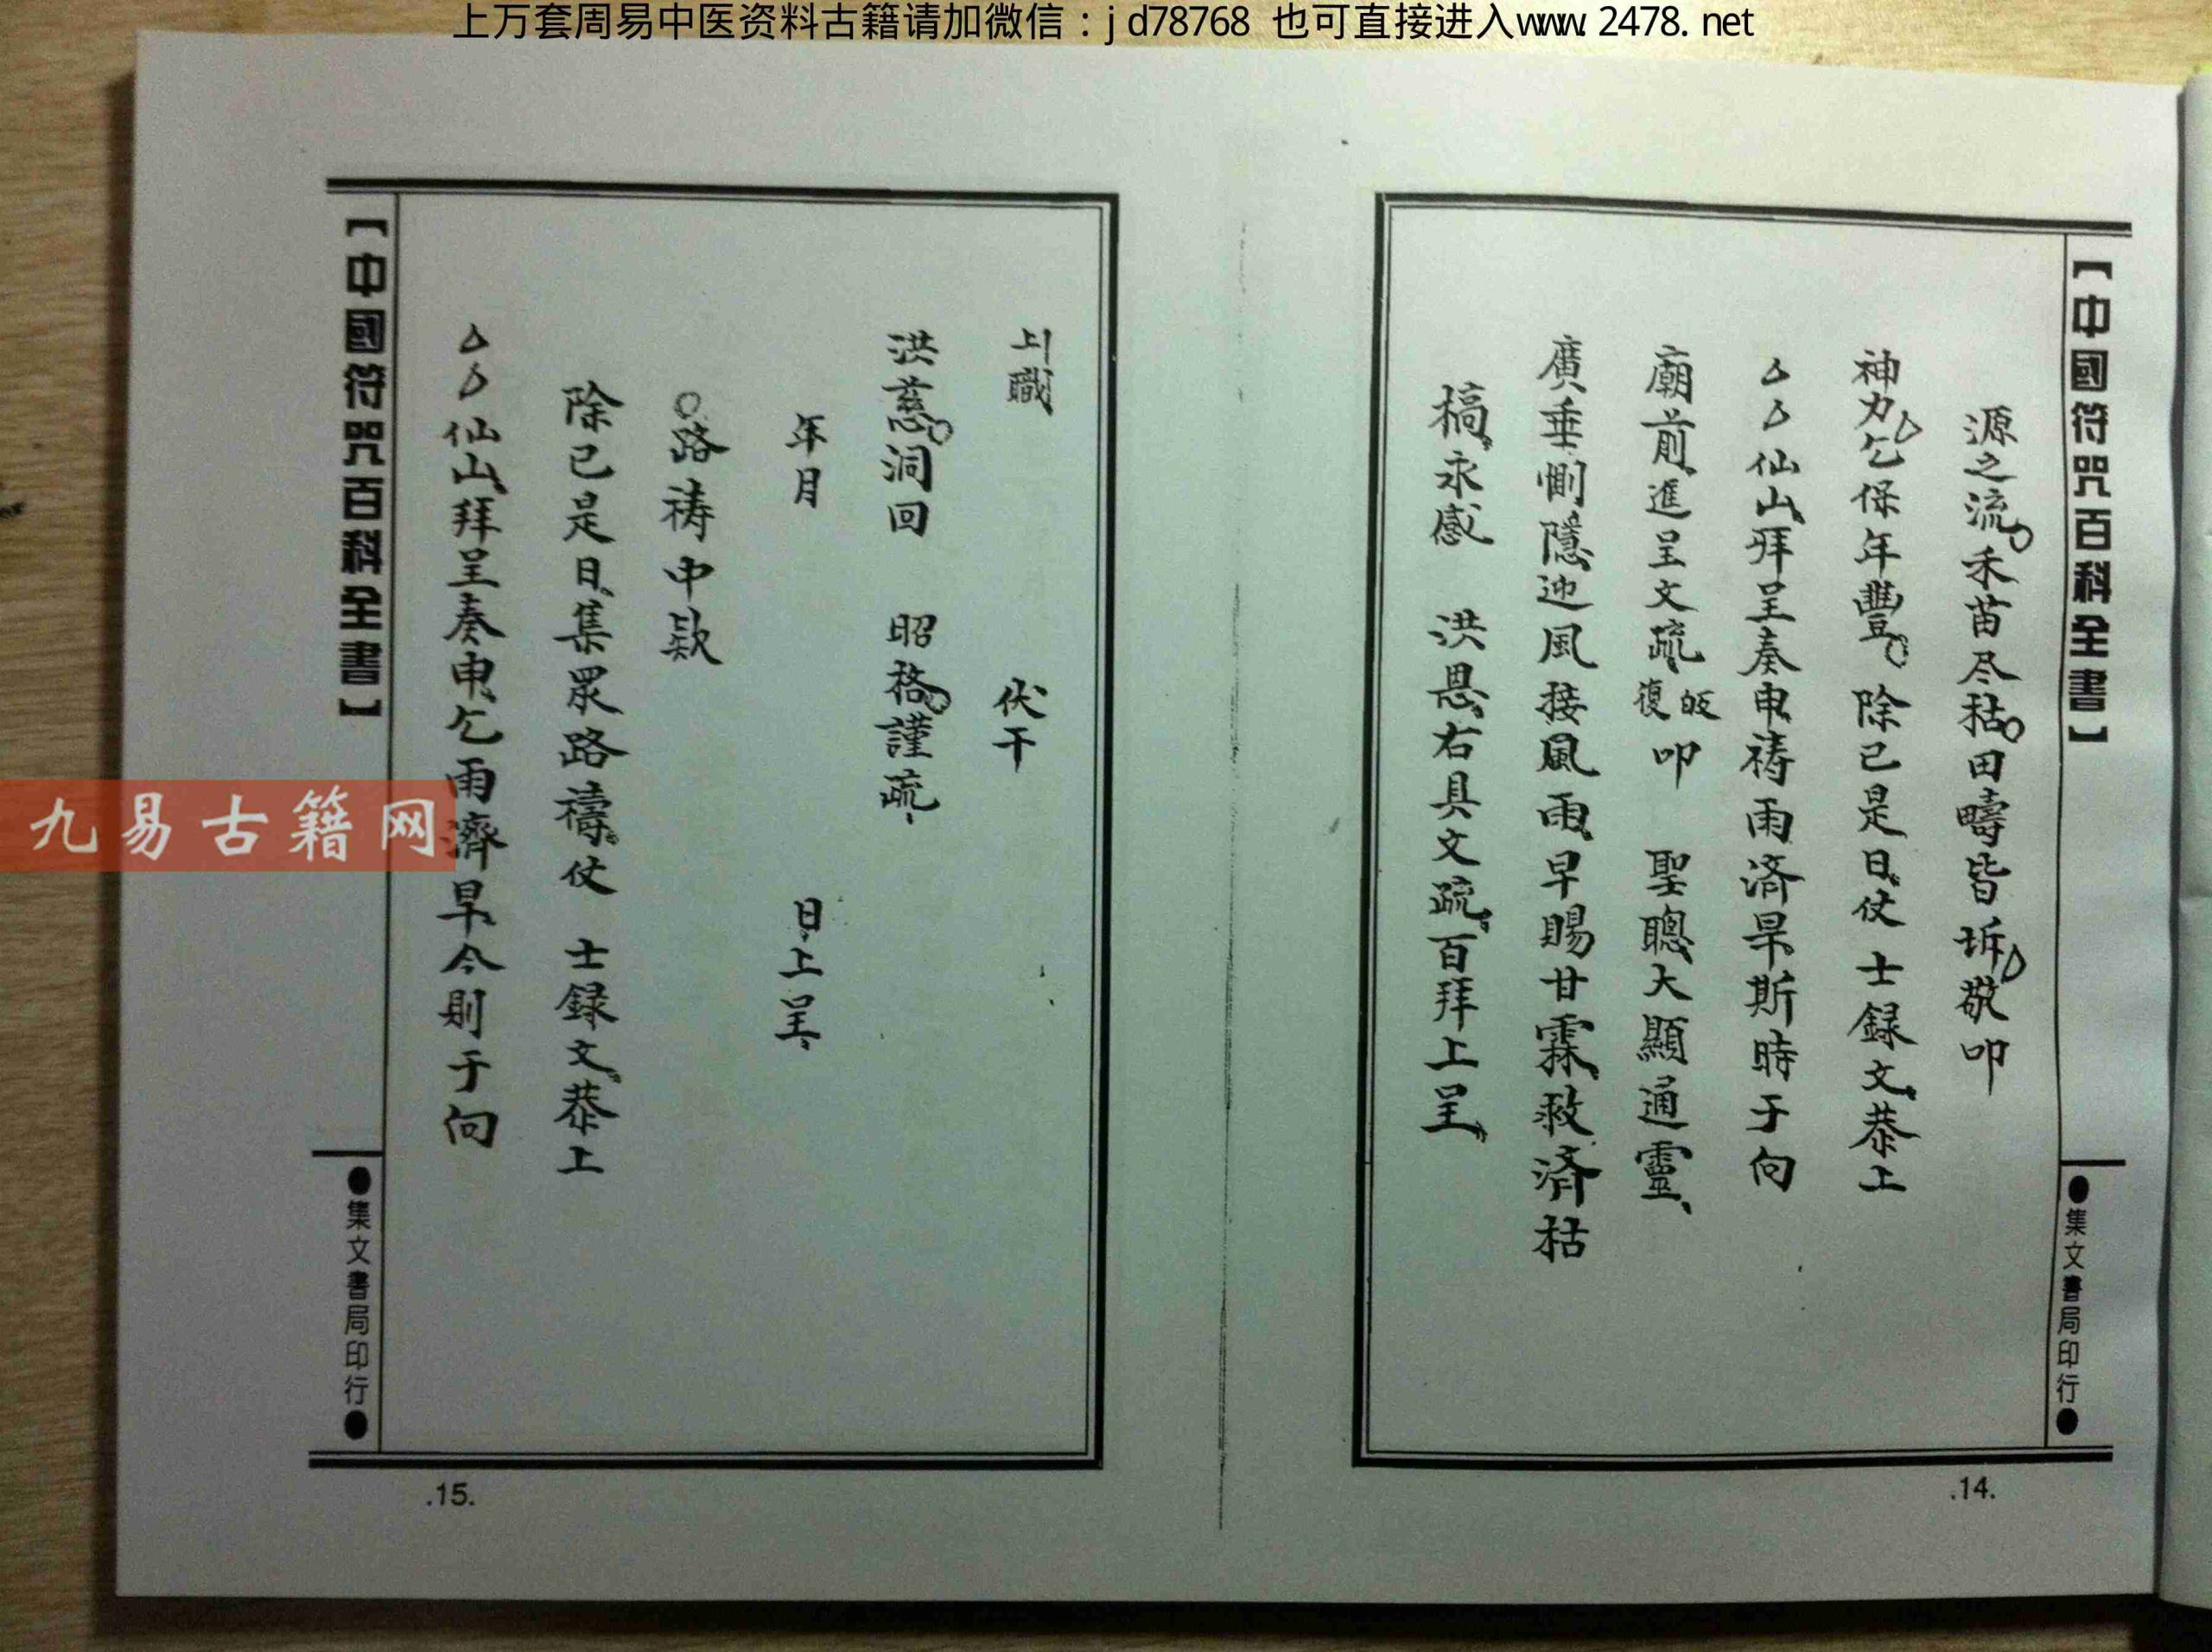 上万套周易中医资料古籍请加微信：jd78768 也可直接进入www.2478.net
【中國符咒百科全書】
源之流。禾苗尽枯。田疇皆坼。敬叩
神力。乞保年豐。除已是日、仗 士録文、恭上
△△仙山、拜呈奏申、祷雨済旱斯時于向
廟前、進呈文疏、復皈叩 聖聰大顯通靈、
廣垂惻隱、迎風接風雨、早賜甘霖、救済枯
槁、永感 洪恩、右具文疏、百拜上呈、
●集文書局印行●
.14.
上職 伏干
洪慈。洞回 昭格。謹疏、
年月 日、上呈、
○路祷中款
除已是日、集眾路禱、仗 士録文、恭上
△△仙山、拜呈奏申、乞雨濟旱、今則于向
【中國符咒百科全書】
●集文書局印行●
.15.
九易古籍网